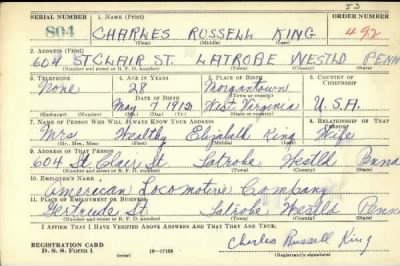 53
SERIAL NUMBER 1. NAME (Print) ORDER NUMBER
804 CHARLES RUSSELL KING 492
(First) (Middle) (Last)
2. ADDRESS (Print)
604 ST CLAIR ST. LATROBE WESTLD PENN
(Number and street or R. F. D. number) (Town) (County) (State)
3. TELEPHONE 4. AGE IN YEARS 5. PLACE OF BIRTH 6. COUNTRY OF CITIZENSHIP
None 28 Morgantown
DATE OF BIRTH (Town or county)
May 7 1912 West Virginia U.S.A.
(Exchange) (Number) (Mo.) (Day) (Yr.) (State or country)
7. NAME OF PERSON WHO WILL ALWAYS KNOW YOUR ADDRESS 8. RELATIONSHIP OF THAT PERSON
Mrs Wealthy Elizabeth King Wife
(Mr., Mrs., Miss) (First) (Middle) (Last)
9. ADDRESS OF THAT PERSON
604 St. Clair St. Latrobe Westld Penna
(Number and street or R. F. D. number) (Town) (County) (State)
10. EMPLOYER'S NAME
American Locomotive Company
11. PLACE OF EMPLOYMENT OR BUSINESS
Gertrude St. Latrobe Westld Penna
(Number and street or R. F. D. number) (Town) (County) (State)
I AFFIRM THAT I HAVE VERIFIED ABOVE ANSWERS AND THAT THEY ARE TRUE.
Charles Russell King
REGISTRATION CARD
D. S. S. Form 1 16-17105 (Registrant's signature)